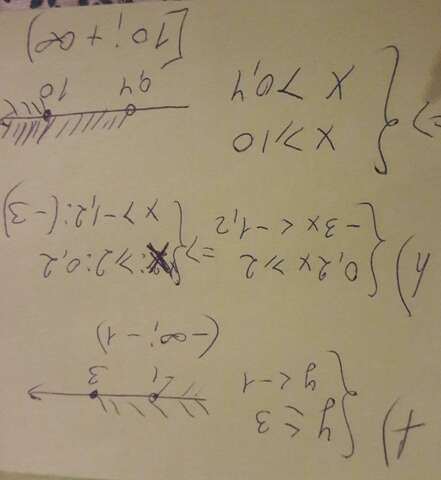 f) { y ≤ 3
y < -1
-1 3
(-∞; -1)
h) { 0,2x ≥ 2 => { x ≥ 2:0,2
-3x < -1,2 x > -1,2:(-3)
=> { x ≥ 10
x > 0,4
0,4 10
[10; +∞)